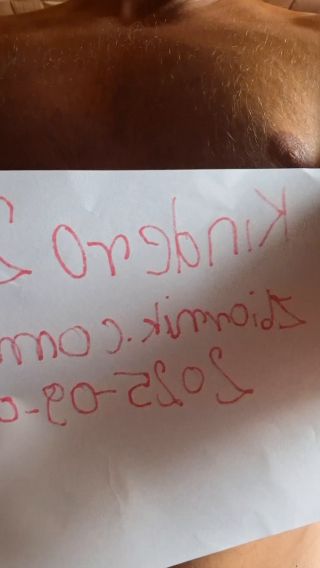 Kindero
Zbiornik.com
2025-09-0